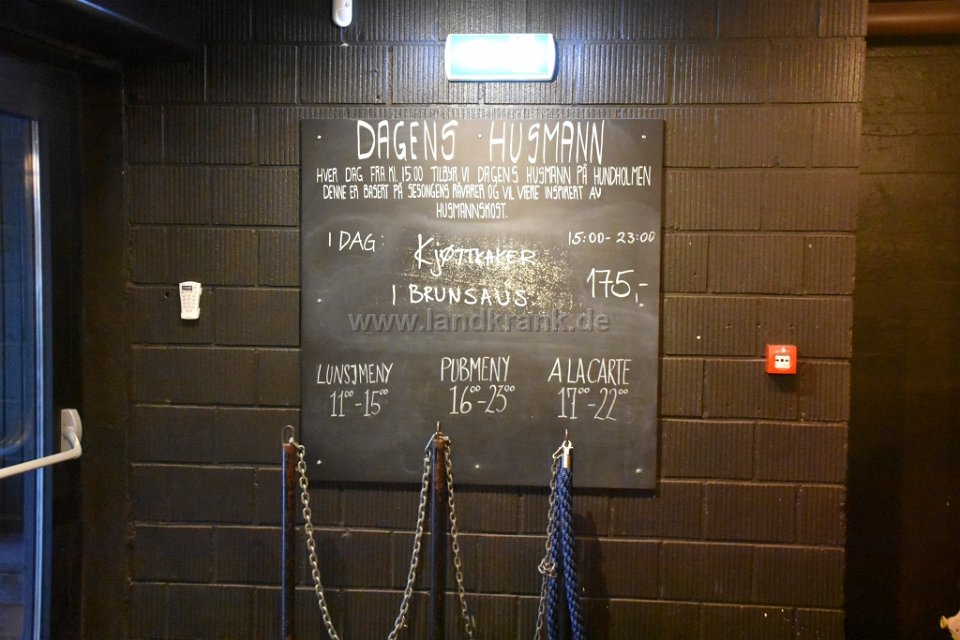 DAGENS HUSMANN
HVER DAG FRA KL 15.00 TILBYR VI DAGENS HUSMANN PÅ HUNDHOLMEN
DENNE ER BASERT PÅ SESONGENS RÅVARER OG VIL VÆRE INSPIRERT AV
HUSMANNSKOST.
I DAG: 15:00-23:00
KJØTTKAKER
I BRUNSAUS. 175,-
www.landkrank.de
LUNSJMENY PUBMENY A LA CARTE
11⁰⁰-15⁰⁰ 16⁰⁰-23⁰⁰ 17⁰⁰-22⁰⁰